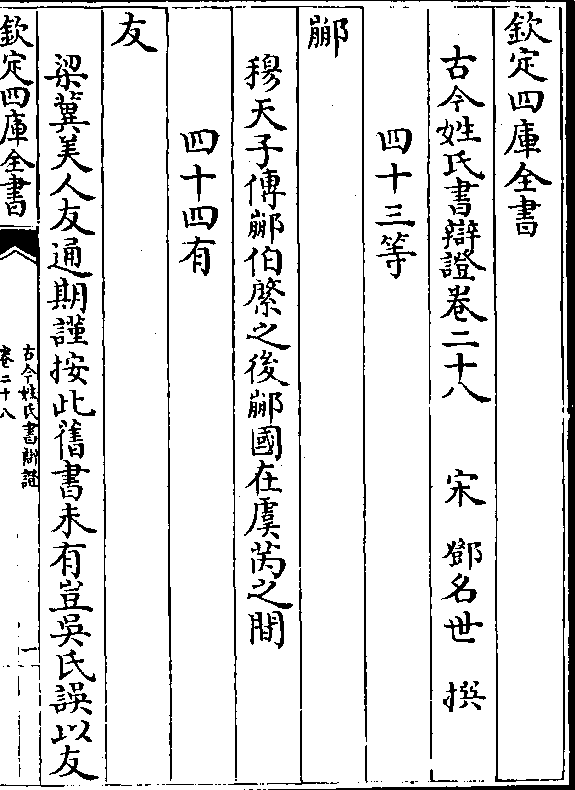 欽定四庫全書
古今姓氏書辯證卷二十八 宋 鄧名世 撰
四十三等
𨞙
穆天子傳𨞙伯縻之後𨞙國在虞芮之間
四十四有
友
梁冀美人友通期謹按此舊書未有豈吳氏誤以友
欽定四庫全書
古今姓氏書辯證
卷二十八
一